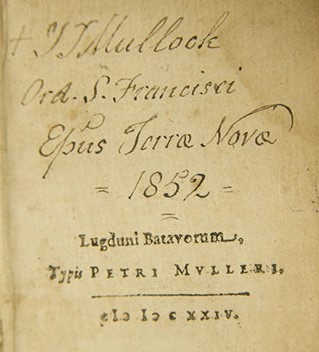 + J J Mullock
Ord. S. Francisci
Epus Terræ Novæ
= 1852 =
=
Lugduni Batavorum,
Typis PETRI MVLLERI.
cIɔ Iɔ C XXIV.